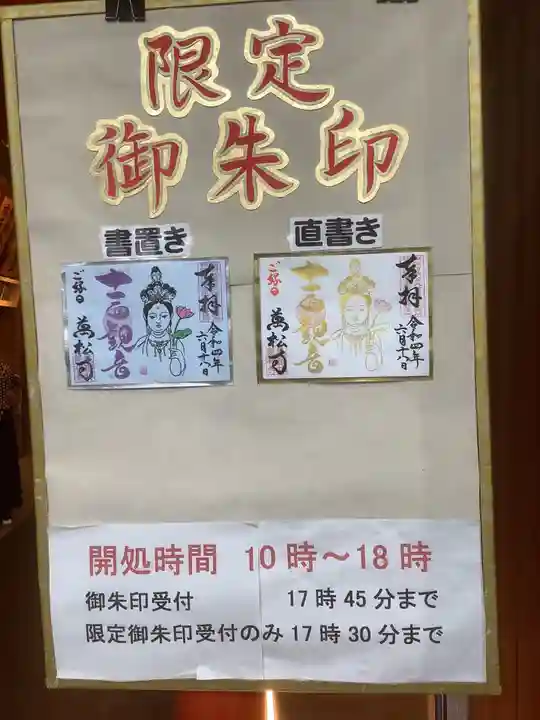 限定
御朱印
書置き
直書き
奉拝
令和四年
六月十八日
十一面観音
ご縁日
萬松寺
奉拝
令和四年
六月十八日
十一面観音
ご縁日
萬松寺
開処時間 10時～18時
御朱印受付 17時45分まで
限定御朱印受付のみ17時30分まで